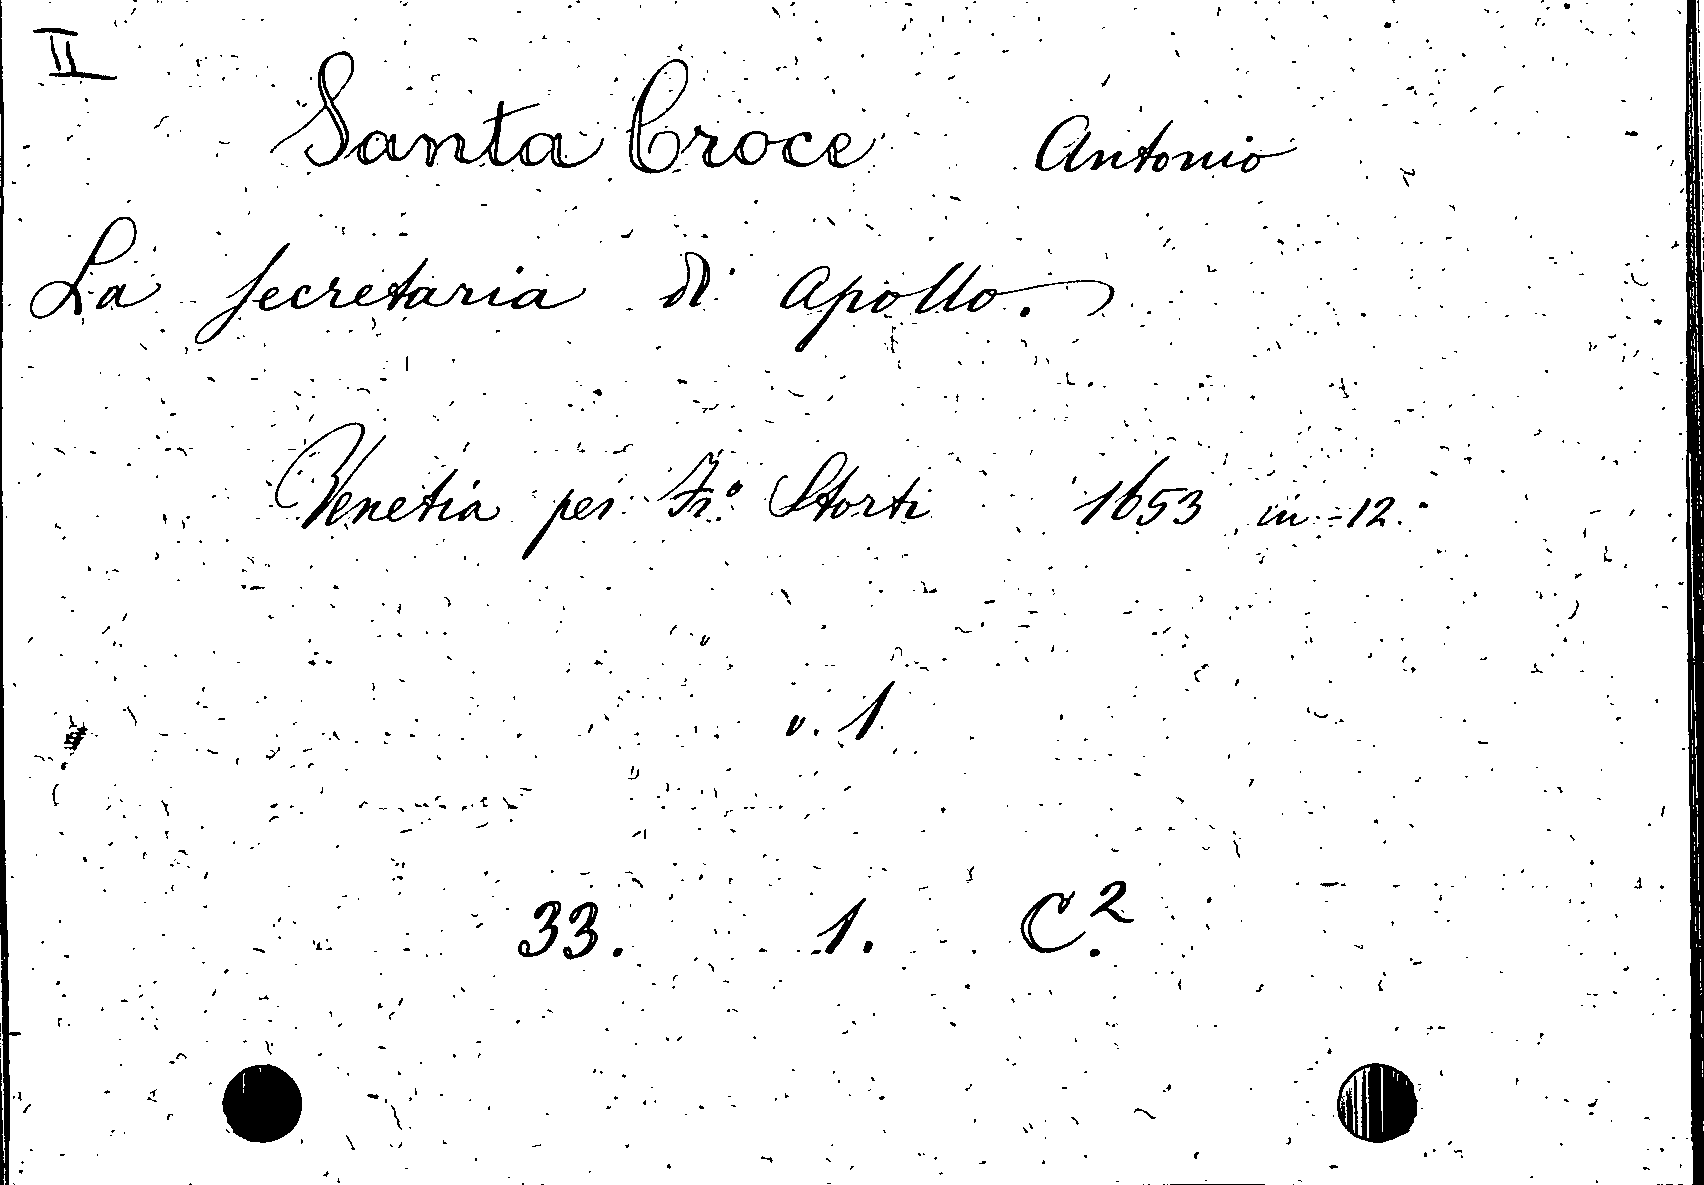 II
Santa Croce Antonio
La secretaria di Apollo.
Venetia per Fr.º Storti 1653 in-12.
v. 1
33. 1. C.²